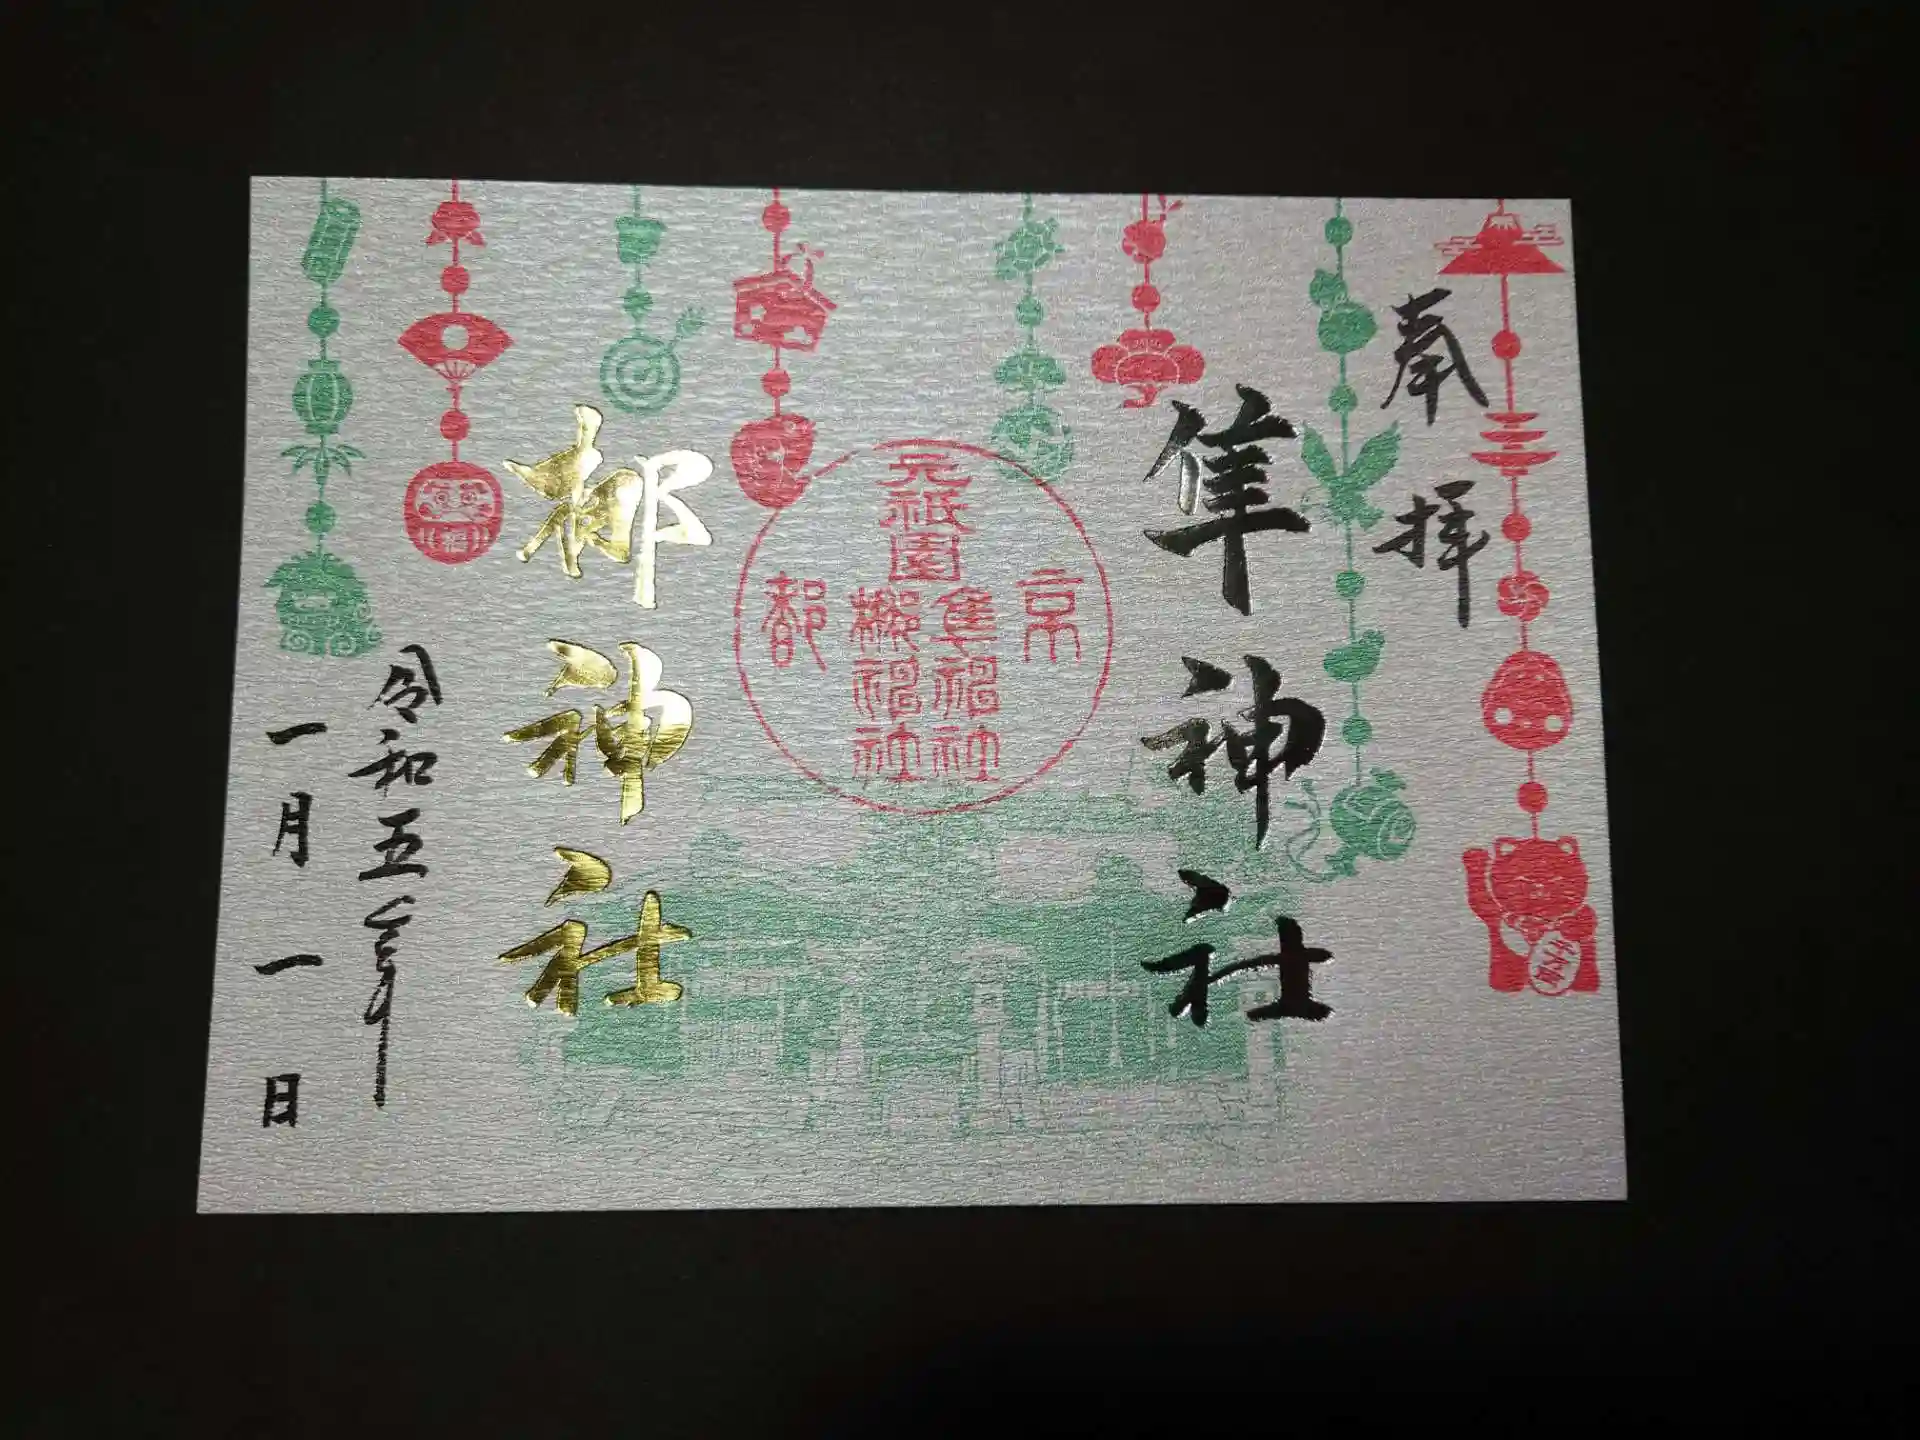 奉拝
隼神社
京都
元祇園
隼神社
梛神社
梛神社
令和五年
一月一日
福
千万両